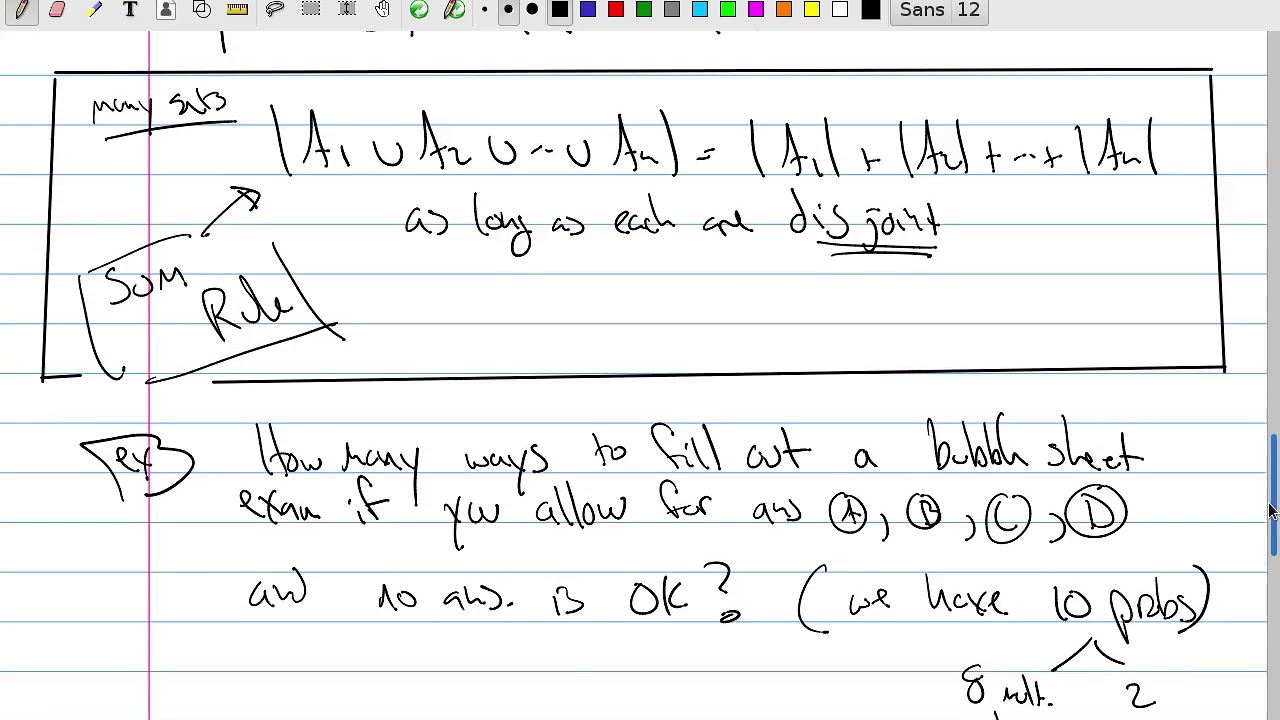 Sans 12
many sets
|A1 ∪ A2 ∪ ... ∪ An| = |A1| + |A2| + ... + |An|
as long as each are disjoint
SUM
Rule
ex
How many ways to fill out a bubble sheet
exam if you allow for ans A, B, C, D
and no ans. is OK? (we have 10 probs)
8 mult. 2